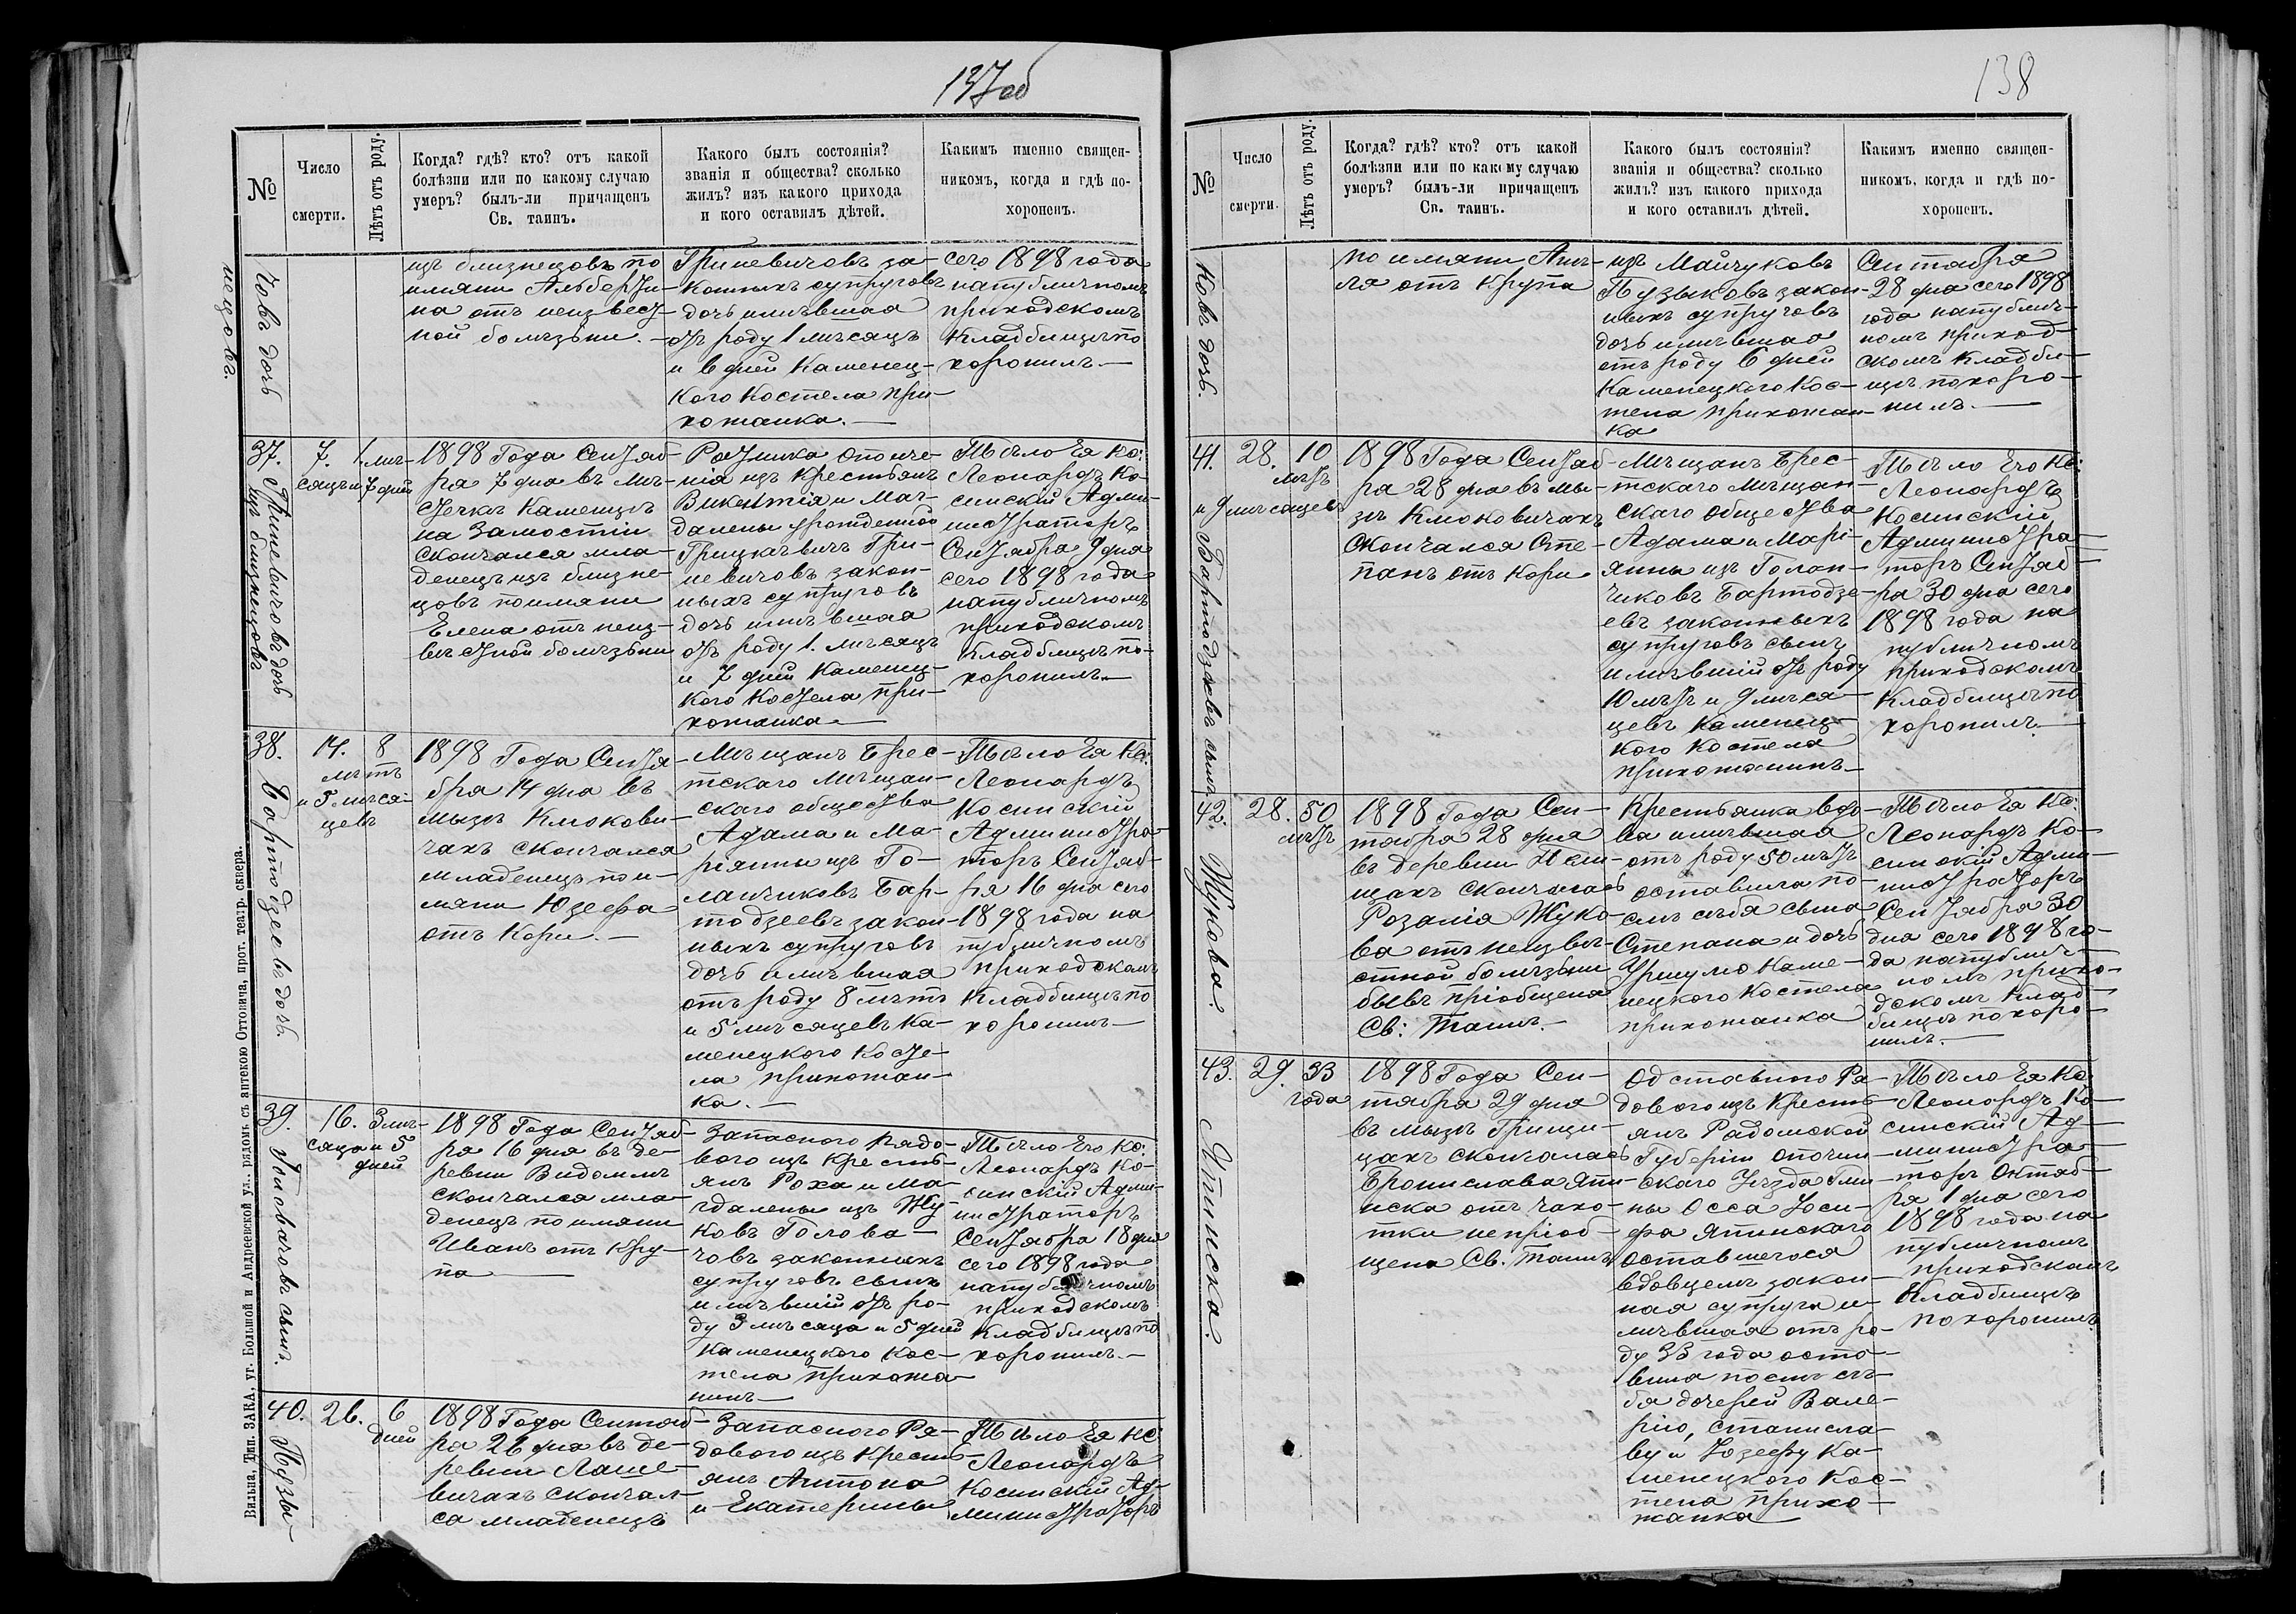 137об
№
Число
смерти.
Лѣтъ отъ роду.
Когда? гдѣ? кто? отъ какой
болѣзни или по какому случаю
умеръ? былъ-ли причащенъ
Св. таинъ.
Какого былъ состоянія?
званія и общества? сколько
жилъ? изъ какого прихода
и кого оставилъ дѣтей.
Какимъ именно священ-
никомъ, когда и гдѣ по-
хороненъ.
човъ дочь
нецовъ.
изъ близнецовъ по
имяни Альберти-
на отъ неизвест-
ной болѣзни.
Гриневичовъ за-
конныхъ супруговъ
дочь имѣвшая
отъ роду 1 мѣсяцъ
и 6 дней Каменец-
кого Костела при-
хожанка.
сего 1898 года
на публичномъ
приходскомъ
Кладбищѣ по
хоронилъ.
37.
Гриневичовъ дочь
изъ близнецовъ
7.
1. мѣ-
сяцъ и 7 дней
1898 Года Сентяб-
ря 7 дня въ Мѣ-
стечкѣ Каменцѣ
на Замостіи
скончался мла-
денецъ изъ близне-
цовъ по имяни
Елена отъ неиз-
вѣстной болѣзни
Ратника ополче-
нія изъ крестьянъ
Викентія и Маг-
далены урожденной
Грицкевичъ Гри-
невичовъ закон-
ныхъ супруговъ
дочь имѣвшая
отъ роду 1. мѣсяцъ
и 7 дней Каменец-
кого Костела при-
хожанка
Тѣло Ея Кс:
Леонардъ Ко-
синскій Адми-
нистраторъ
Сентября 9 дня
сего 1898 года
на публичномъ
приходскомъ
Кладбищѣ по-
хоронилъ
38.
Бартодзеевъ дочь.
14.
8
лѣтъ
и 5 мѣся-
цевъ
1898 Года Сентя-
бря 14 дня въ
мызѣ Клюкови-
чахъ скончался
младенецъ по и-
мяни Юзефа
отъ Кори.
Мѣщанъ Брес-
тскаго мѣщан-
скаго общества
Адама и Ма-
ріянны изъ Го-
ланчиковъ Бар-
тодзеевъ закон-
ныхъ супруговъ
дочь имѣвшая
отъ роду 8 лѣтъ
и 5 мѣсяцевъ Ка-
менецкого Косте-
ла прихожан-
ка.
Тѣло Ея Кс:
Леонардъ
Косинскій
Администра-
торъ Сентяб-
ря 16 дня сего
1898 года на
публичномъ
приходскомъ
Кладбищѣ по
хоронилъ
39.
Головачовъ сынъ.
16.
3 мѣ-
сяца и 5
дней
1898 Года Сентяб-
ря 16 дня въ де-
ревни Видомлѣ
скончался мла-
денецъ по имяни
Иванъ отъ Кру-
па
Запасного рядо-
вого изъ кресть-
янъ Роха и Ма-
гдалены изъ Жу
ковъ Голова-
човъ законныхъ
супруговъ сынъ
имѣвшій отъ ро-
ду 3 мѣсяца и 5 дней
Каменецкого Кос-
тела прихожа-
нинъ
Тѣло Его Кс:
Леонардъ Ко-
синскій Адми-
нистраторъ
Сентября 18 дня
сего 1898 года
на публичномъ
приходскомъ
Кладбищѣ по
хоронилъ.
40.
Пузы-
26.
6
дней
1898 Года Сентяб-
ря 26 дня въ де-
ревни Лаше-
вичахъ скончал-
ся младенецъ
Запасного Ря-
дового изъ кресть-
янъ Антона
и Екатерины
Тѣло Ея Кс:
Леонардъ
Косинскій Ад-
министраторъ
Вильна, Тип. ЗАКА, уг. Большой и Андреевской ул., рядомъ съ аптекою Оттовича, прот. театр. сквера.
138
№
Число
смерти.
Лѣтъ отъ роду.
Когда? гдѣ? кто? отъ какой
болѣзни или по какому случаю
умеръ? былъ-ли причащенъ
Св. таинъ.
Какого былъ состоянія?
званія и общества? сколько
жилъ? изъ какого прихода
и кого оставилъ дѣтей.
Какимъ именно священ-
никомъ, когда и гдѣ по-
хороненъ.
ковъ дочь.
по имяни Анѣ-
ля отъ Крупа
изъ Майчуковъ
Пузыковъ закон-
ныхъ супруговъ
дочь имѣвшая
отъ роду 6 дней
Каменецкого Кос-
тела прихожан-
ка
Сентября
28 дня сего 1898
года на публич-
номъ приход-
скомъ кладби-
щѣ похоро-
нилъ.
41.
Бартодзеевъ сынъ.
28.
10
лѣтъ
и 9 мѣсяцевъ
1898 Года Сентяб-
ря 28 дня въ мы-
зѣ Клюковичахъ
Скончался Сте-
панъ отъ Кори
Мѣщанъ Брес-
тскаго мѣщан-
скаго общества
Адама и Марі-
янны изъ Голан-
чиковъ Бартодзе-
евъ законныхъ
супруговъ сынъ
имѣвшій отъ роду
10 лѣтъ и 9 мѣся-
цевъ Каменец-
кого Костела
прихожанинъ
Тѣло Его Кс:
Леонардъ
Косинскій
Администра-
торъ Сентяб-
ря 30 дня сего
1898 года на
публичномъ
приходскомъ
Кладбищѣ по
хоронилъ.
42.
Жукова.
28.
50
лѣтъ
1898 Года Сен-
тября 28 дня
въ деревни
скончалась
Розалія Жуко-
ва отъ неизвѣ-
стной болѣзни
бывъ пріобщена
Св: Таинъ.
Крестьянка вдо-
ва имѣвшая
отъ роду 50 лѣтъ
оставила по-
слѣ себя сына
Степана и дочь
Уршулю Каме-
нецкого Костела
прихожанка
Тѣло Ея Кс:
Леонардъ Ко-
синскій Адми-
нистраторъ
Сентября 30
дня сего 1898 го-
да на публич-
номъ прихо-
дскомъ Клад-
бищѣ похоро-
нилъ.
43.
Япинска.
29.
33
года
1898 Года Сен-
тября 29 дня
въ мызѣ Грици-
цахъ скончалась
Брониславa Япи-
нска отъ чахо-
тки непріоб-
щена Св. Таинъ
Одставного Ря-
дового изъ Кресть-
янъ Радомской
Губерніи Опочин-
ского Уезда Гми-
ны Осса Іоси-
фа Япинскаго
оставшегося
вдовцемъ закон-
ная супруга и-
мѣвшая отъ ро-
ду 33 года оста-
вила послѣ се-
бя дочерей Вале-
рію, станисла-
ву и Юзефу Ка-
менецкого Кос-
тела прихо-
жанка
Тѣло Ея Кс:
Леонардъ Ко-
синскій Ад-
министра-
торъ Октяб-
ря 1 дня сего
1898 года на
публичномъ
приходскомъ
Кладбищѣ
похоронилъ.